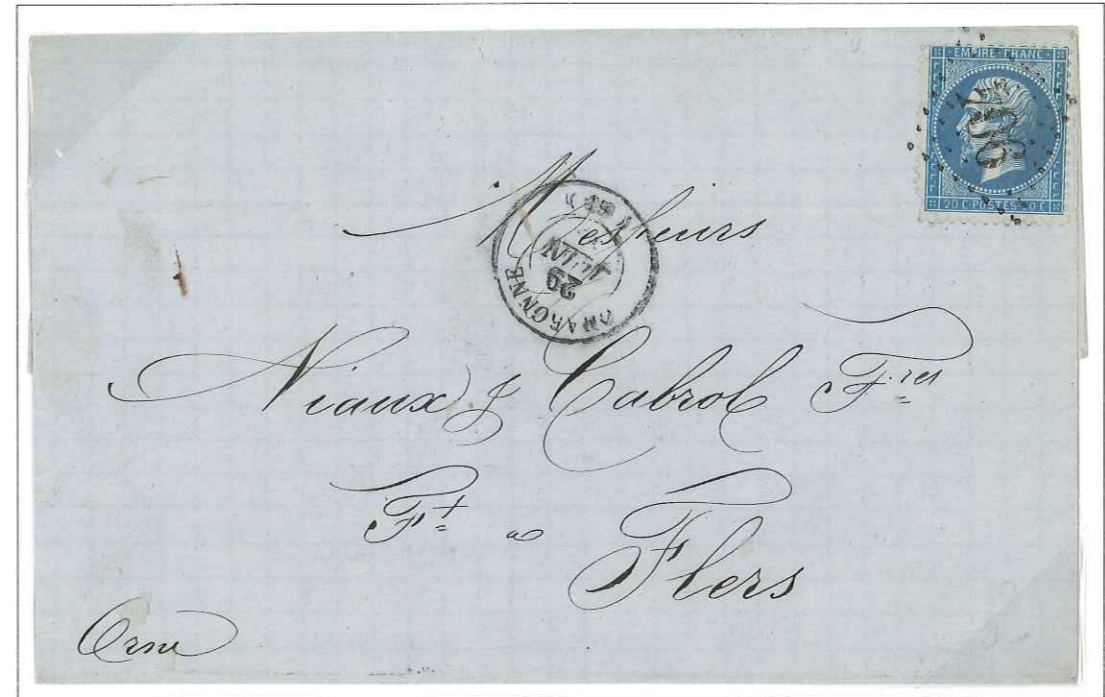 EMPIRE FRANC
20 C. POSTES 20 C.
Messieurs
29
JUIN
Niaux & Cabrol F.res
F.t a
Flers
Orne